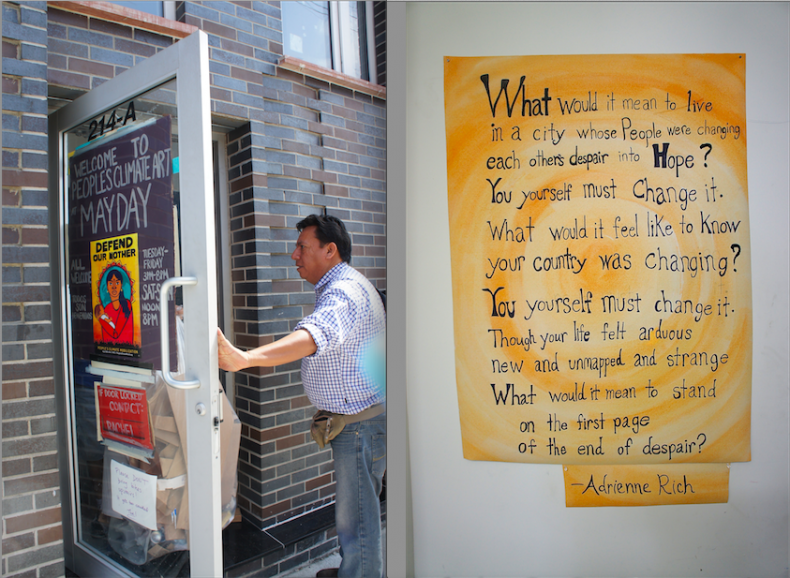 214-A
WELCOME TO
PEOPLES CLIMATE ART
MAYDAY
DEFEND
OUR MOTHER
ALL
WELCOME
TUESDAY-
FRIDAY
3PM-8PM
SAT+S
NOON
8PM
IF DOOR LOCKED
CONTACT:
RACHEL
What would it mean to live
in a city whose People were changing
each other's despair into Hope?
You yourself must Change it.
What would it feel like to Know
your country was changing?
You yourself must change it.
Though your life felt arduous
new and unmapped and strange
What would it mean to stand
on the first page
of the end of despair?
-Adrienne Rich